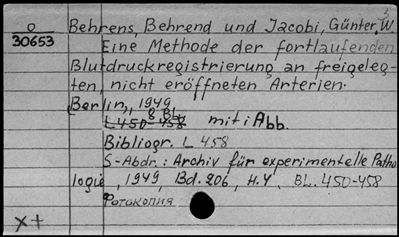 Behrens, Behrend und Jacobi, Günter, W.
0
30653
Eine Methode der fortlaufenden
Blutdruckregistrierung an freigeleg-
ten, nicht eröffneten Arterien.
(Berlin), 1949
8 Bl.
L 450-458 mit i Abb.
Bibliogr. L 458
S-Abdr.: Archiv für experimentelle Patho
logie, 1949, Bd. 206, H.4, BL. 450-458
Фотокопия.
X+